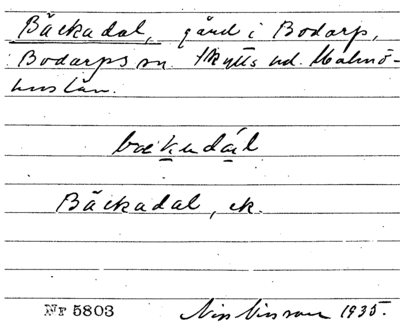 Bäckadal, gård i Bodarp,
Bodarps sn. Skytts hd. Malmö-
hus län.
Bäckadal, ek.
Nr 5803 Nils Nilsson 1935.